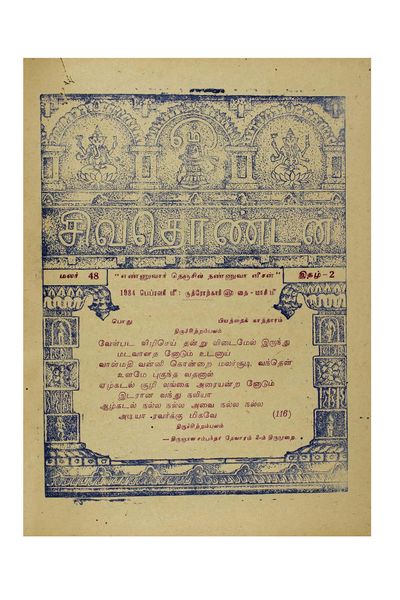 சிவதொண்டன்
மலர் 48
"எண்ணுவார் நெஞ்சில் நண்ணுவா னீசன்"
இதழ்-2
1984 பெப்ரவரி மீ : ருத்ரோற்காரி ௵ தை - மாசி மீ
பொது
பியந்தைக் காந்தாரம்
திருச்சிற்றம்பலம்
வேள்பட விழிசெய் தன்று விடைமேல் இருந்து
மடவாள்த னோடும் உடனாய்
வாள்மதி வன்னி கொன்றை மலர்சூடி வந்தென்
உளமே புகுந்த வதனால்
ஏழ்கடல் சூழி லங்கை அரையன்ற னோடும்
இடரான வந்து நலியா
ஆழ்கடல் நல்ல நல்ல அவை நல்ல நல்ல
அடியா ரவர்க்கு மிகவே
(116)
திருச்சிற்றம்பலம்
— திருஞானசம்பந்தர் தேவாரம் 2-ம் திருமுறை.